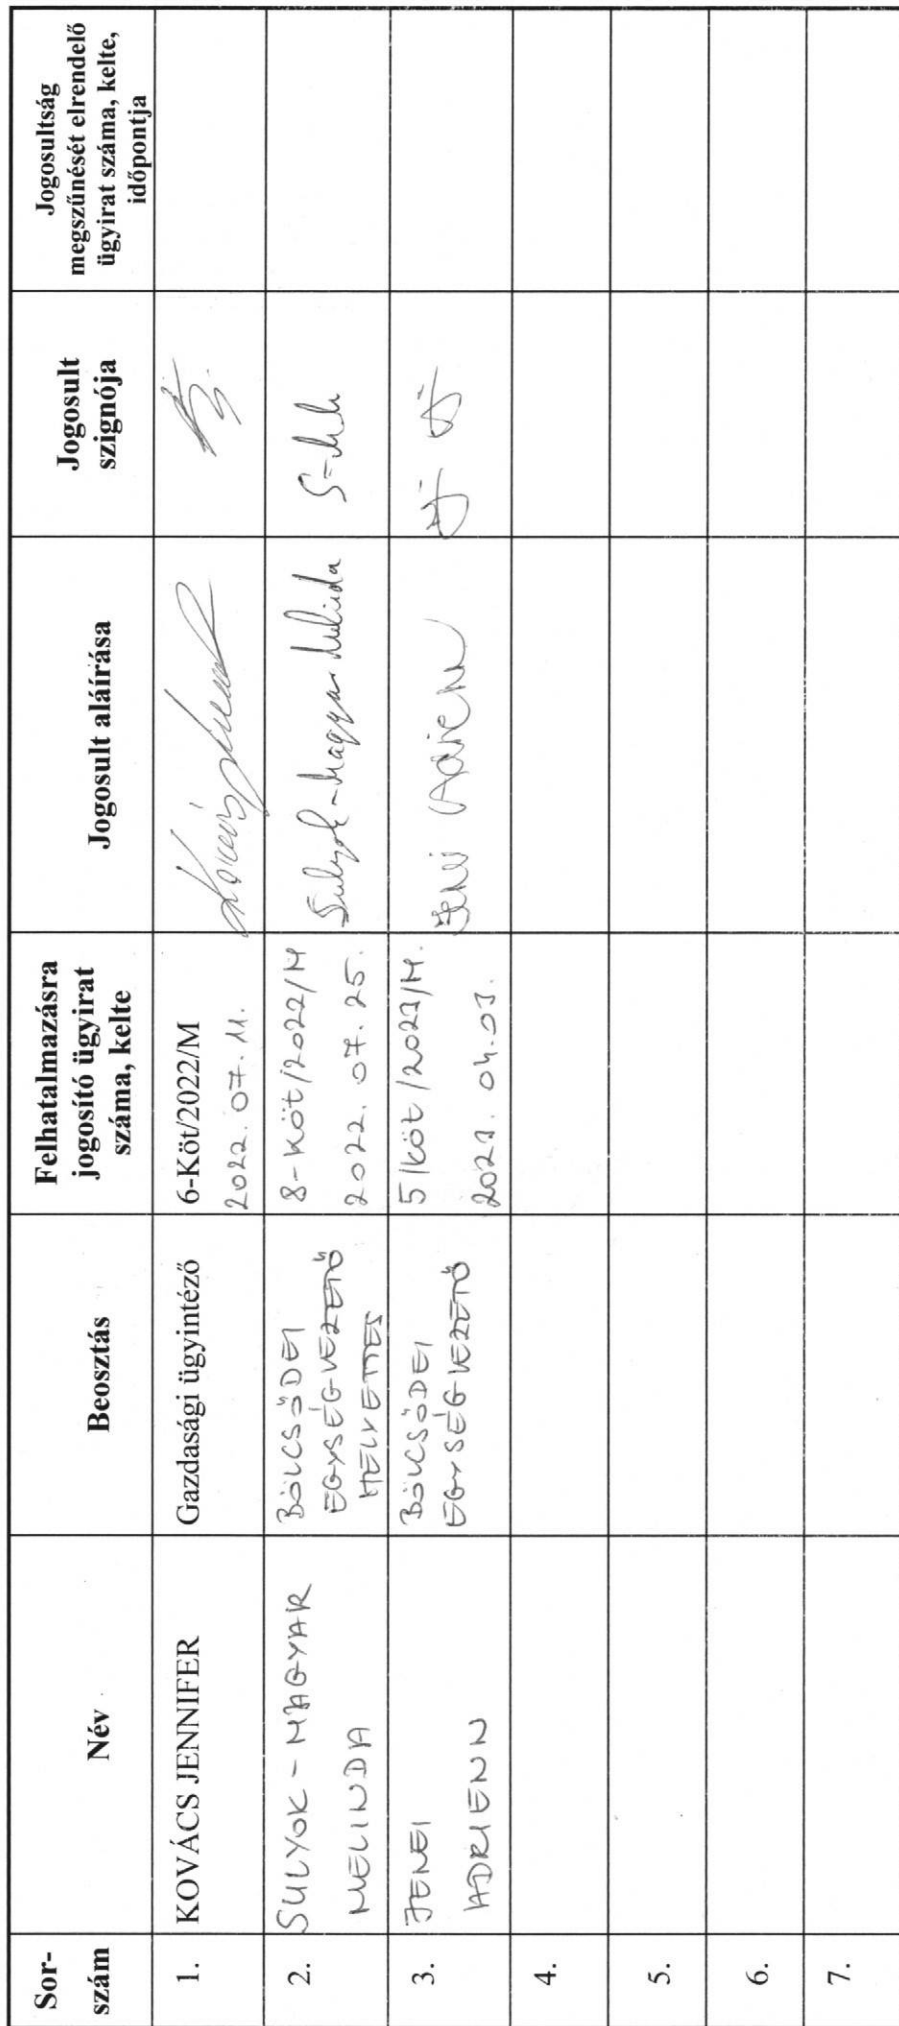 Sor-
szám
Név
Beosztás
Felhatalmazásra
jogosító ügyirat
száma, kelte
Jogosult aláírása
Jogosult
szignója
Jogosultság
megszűnését elrendelő
ügyirat száma, kelte,
időpontja
1.
KOVÁCS JENNIFER
Gazdasági ügyintéző
6-Köt/2022/M
2022. 07. 11.
2.
SULYOK - MAGYAR
MELINDA
BÖLCSŐDEI
EGYSÉGVEZETŐ
HELYETTES
8-KÖT/2022/M
2022. 07. 25.
Sulyok-Magyar Melinda
S-MM
3.
JENEI
ADRIENN
BÖLCSŐDEI
EGYSÉGVEZETŐ
5/KÖT/2023/M.
2023. 04.03.
Jenei Adrienn
4.
5.
6.
7.